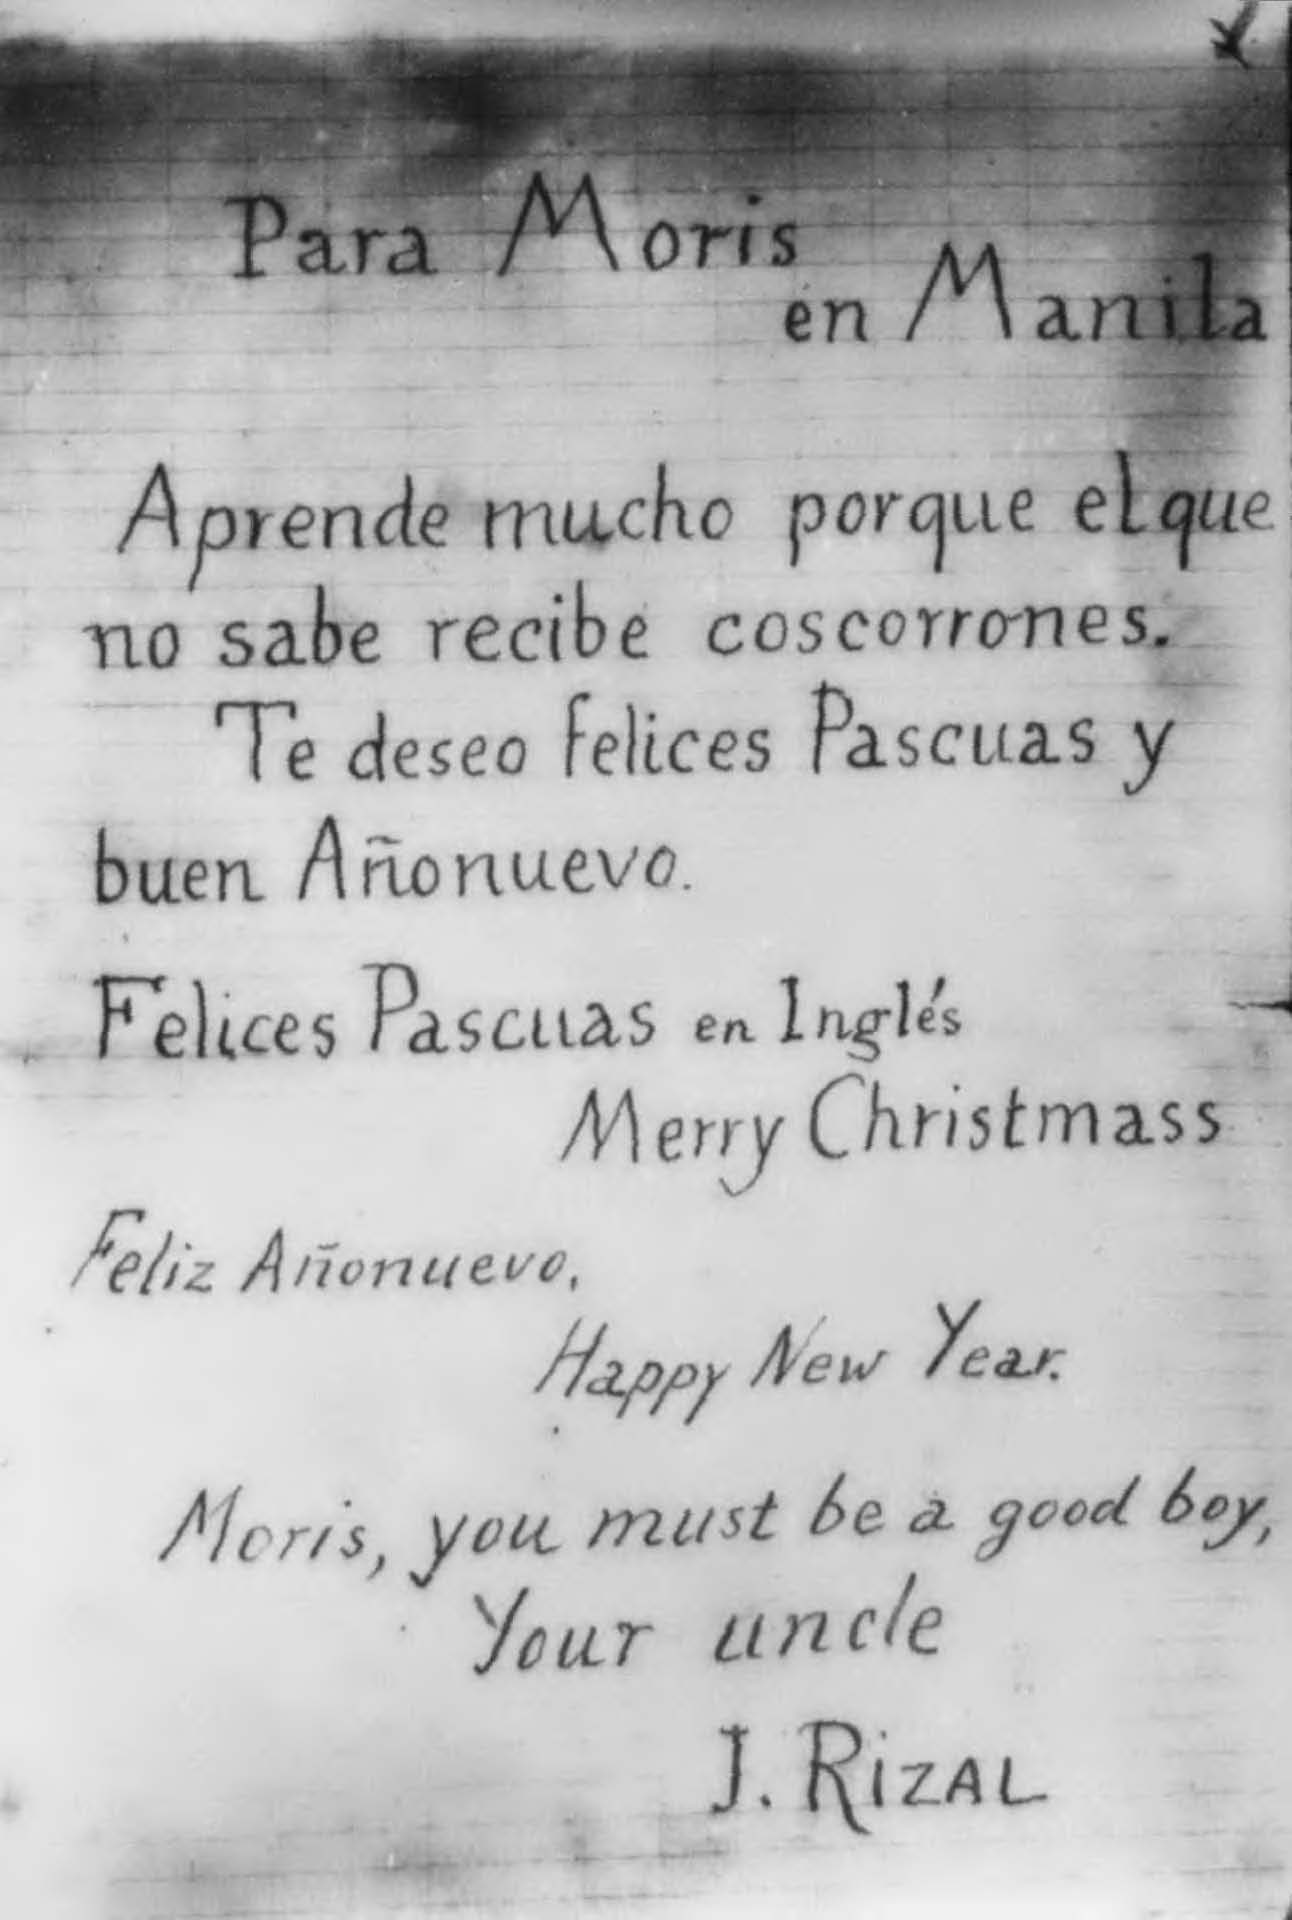 Para Moris
en Manila
Aprende mucho porque el que
no sabe recibe coscorrones.
Te deseo felices Pascuas y
buen Añonuevo.
Felices Pascuas en Inglés
Merry Christmass
Feliz Añonuevo,
Happy New Year.
Moris, you must be a good boy,
Your uncle
J. RIZAL